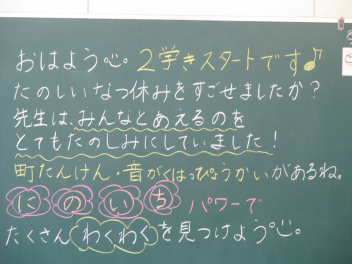 おはよう♡。2学きスタートです♪
たのしいなつ休みをすごせましたか？
先生は、みんなとあえるのを
とてもたのしみにしていました！
町たんけん・音がくはっぴょうかいがあるね。
にのいちパワーで
たくさんわくわくを見つけよう♡。